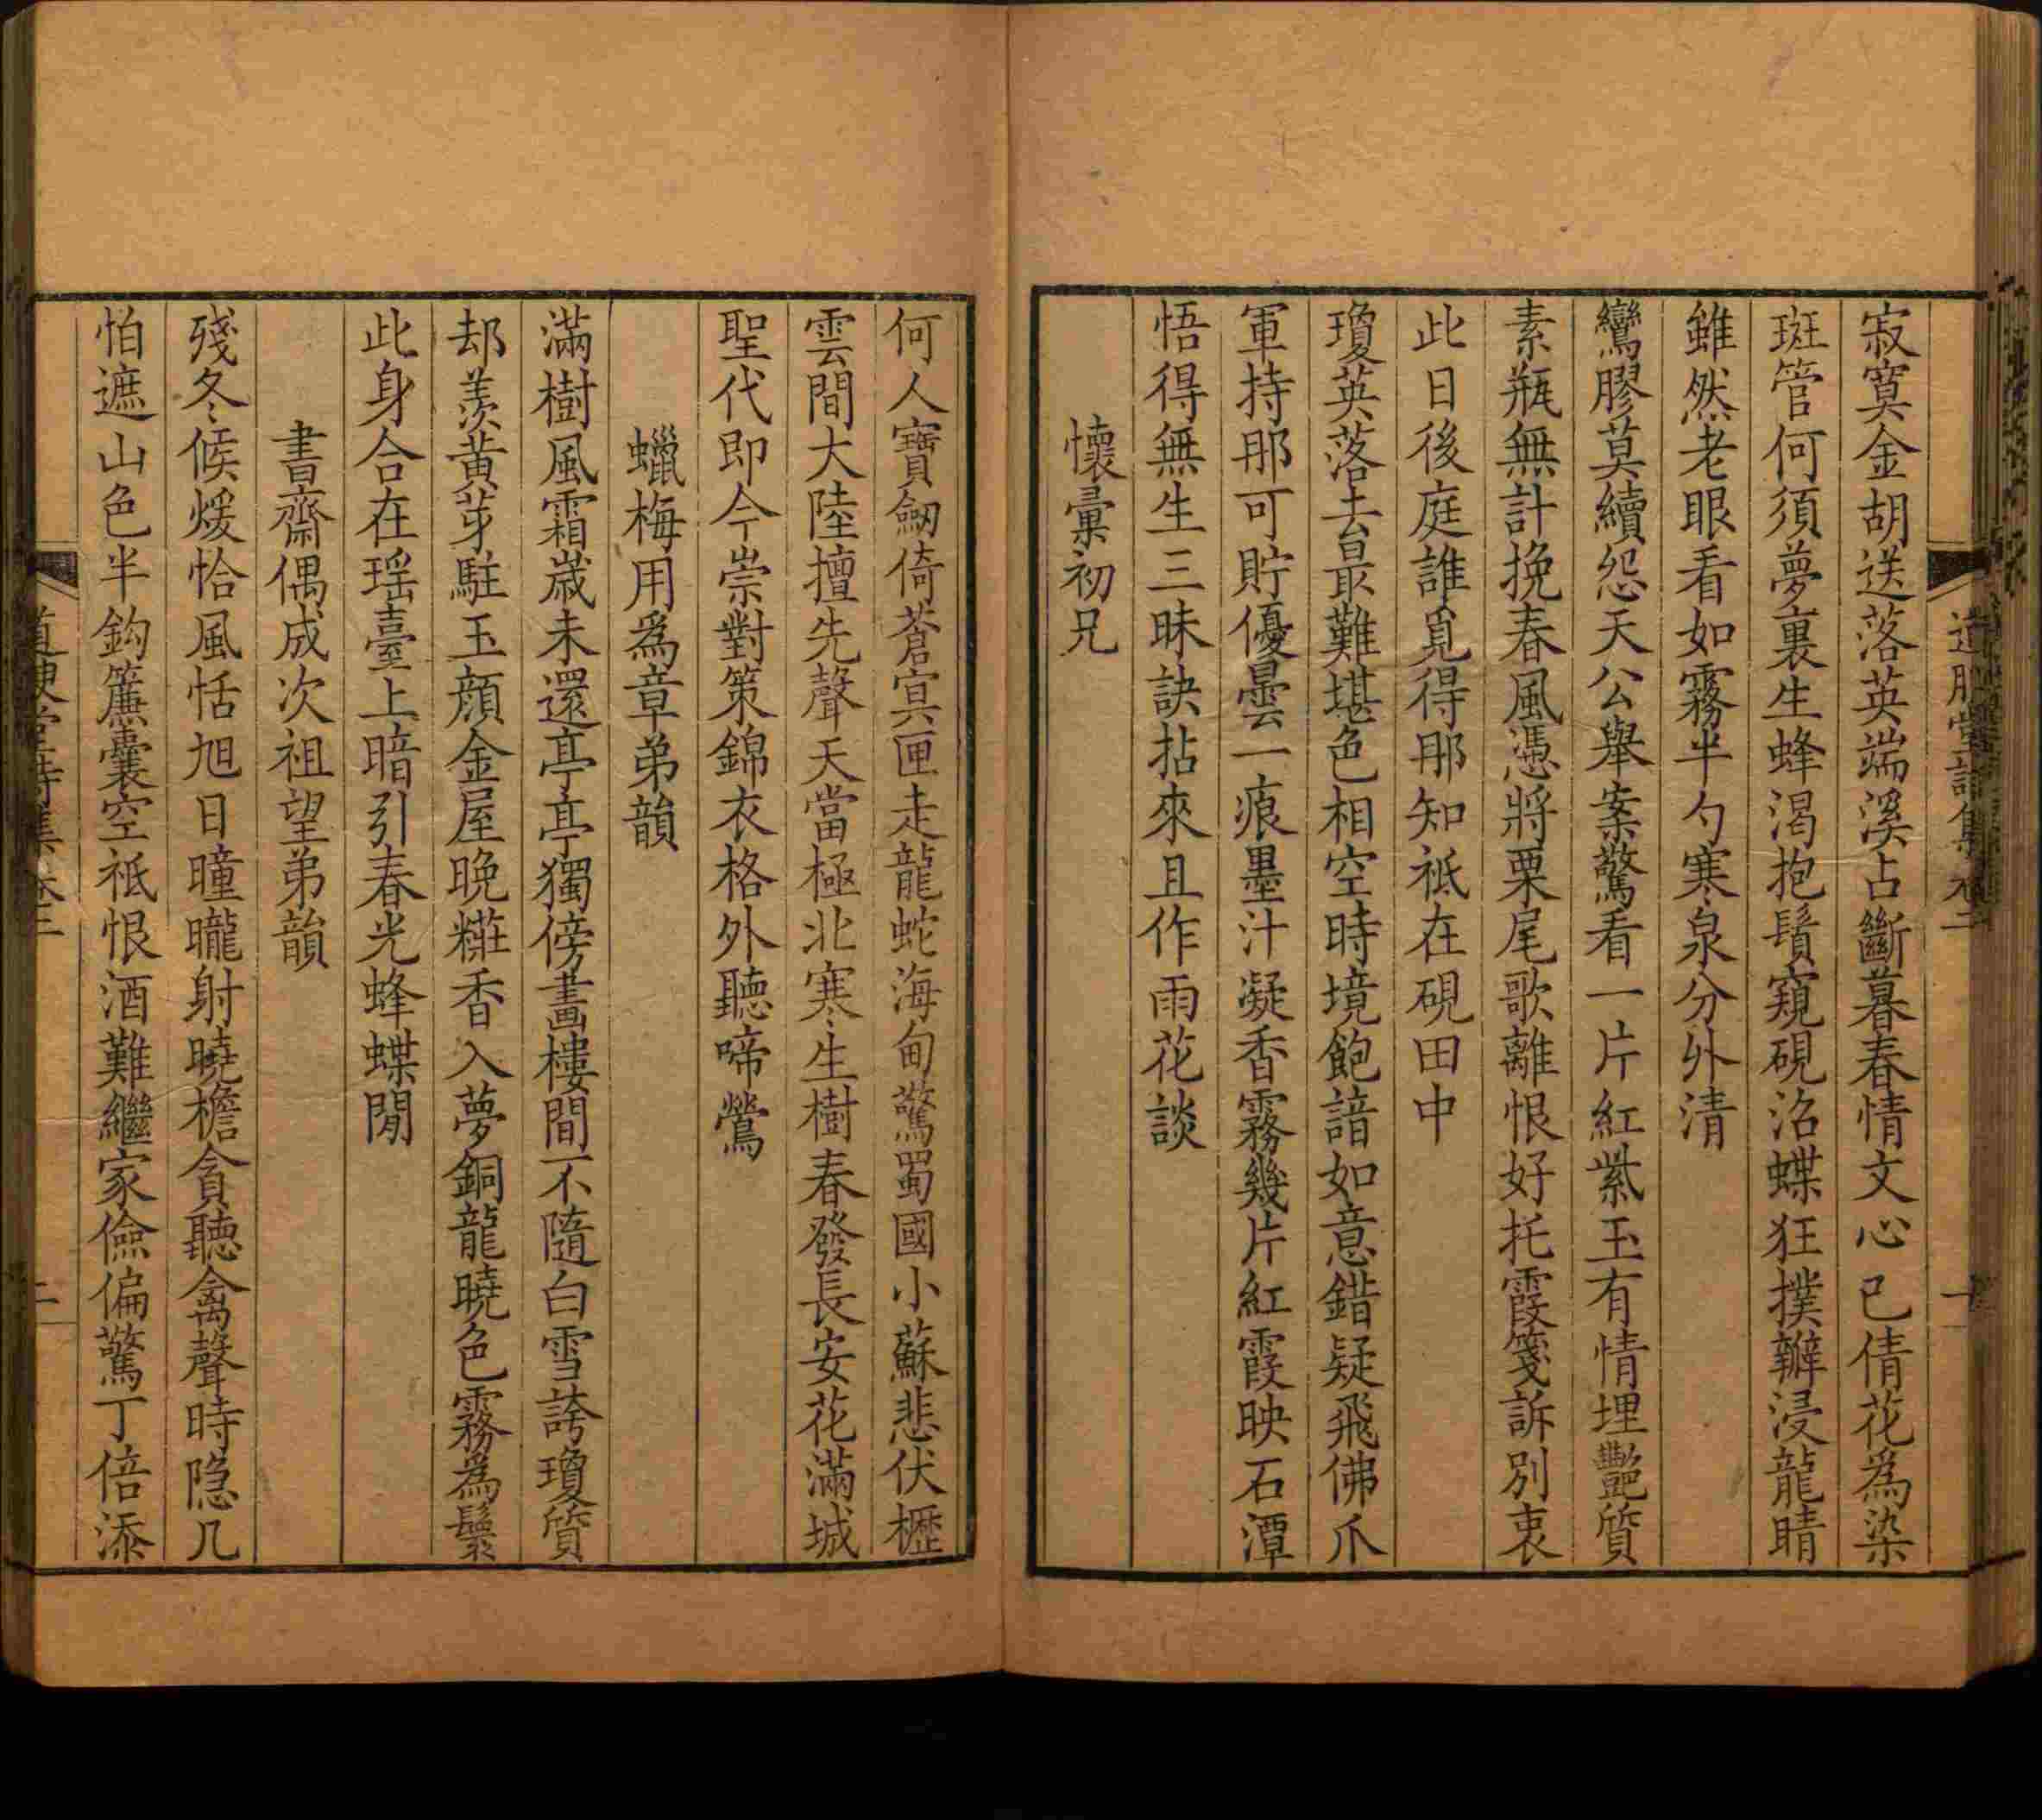 寂寞金胡送落英端溪占斷暮春情文心已倩花爲染
斑管何須夢裏生蜂渴抱鬚窺硯沼蝶狂撲瓣浸龍睛
雖然老眼看如霧半勺寒泉分外清
鸞膠莫續怨天公舉案驚看一片紅紫玉有情埋豔質
素瓶無計挽春風憑將栗尾歌離恨好托霞箋訴別衷
此日後庭誰覓得那知祇在硯田中
瓊英落去最難堪色相空時境飽諳如意錯疑飛佛爪
軍持那可貯優曇一痕墨汁凝香霧幾片紅霞映石潭
悟得無生三昧訣拈來且作雨花談
懷彙初兄
何人寶劒倚蒼冥匣走龍蛇海甸驚蜀國小蘇悲伏櫪
雲間大陸擅先聲天當極北寒生樹春發長安花滿城
聖代即今崇對策錦衣格外聽啼鶯
蠟梅用爲章弟韻
滿樹風霜歲未還亭亭獨傍畫樓間不隨白雪誇瓊質
却羨黃芽駐玉顔金屋晚糚香入夢銅龍曉色霧爲鬟
此身合在瑶臺上暗引春光蜂蝶閒
書齋偶成次祖望弟韻
殘冬候煖恰風恬旭日曈曨射曉檐貪聽禽聲時隐几
怕遮山色半鈎簾囊空祇恨酒難繼家儉偏驚丁倍添